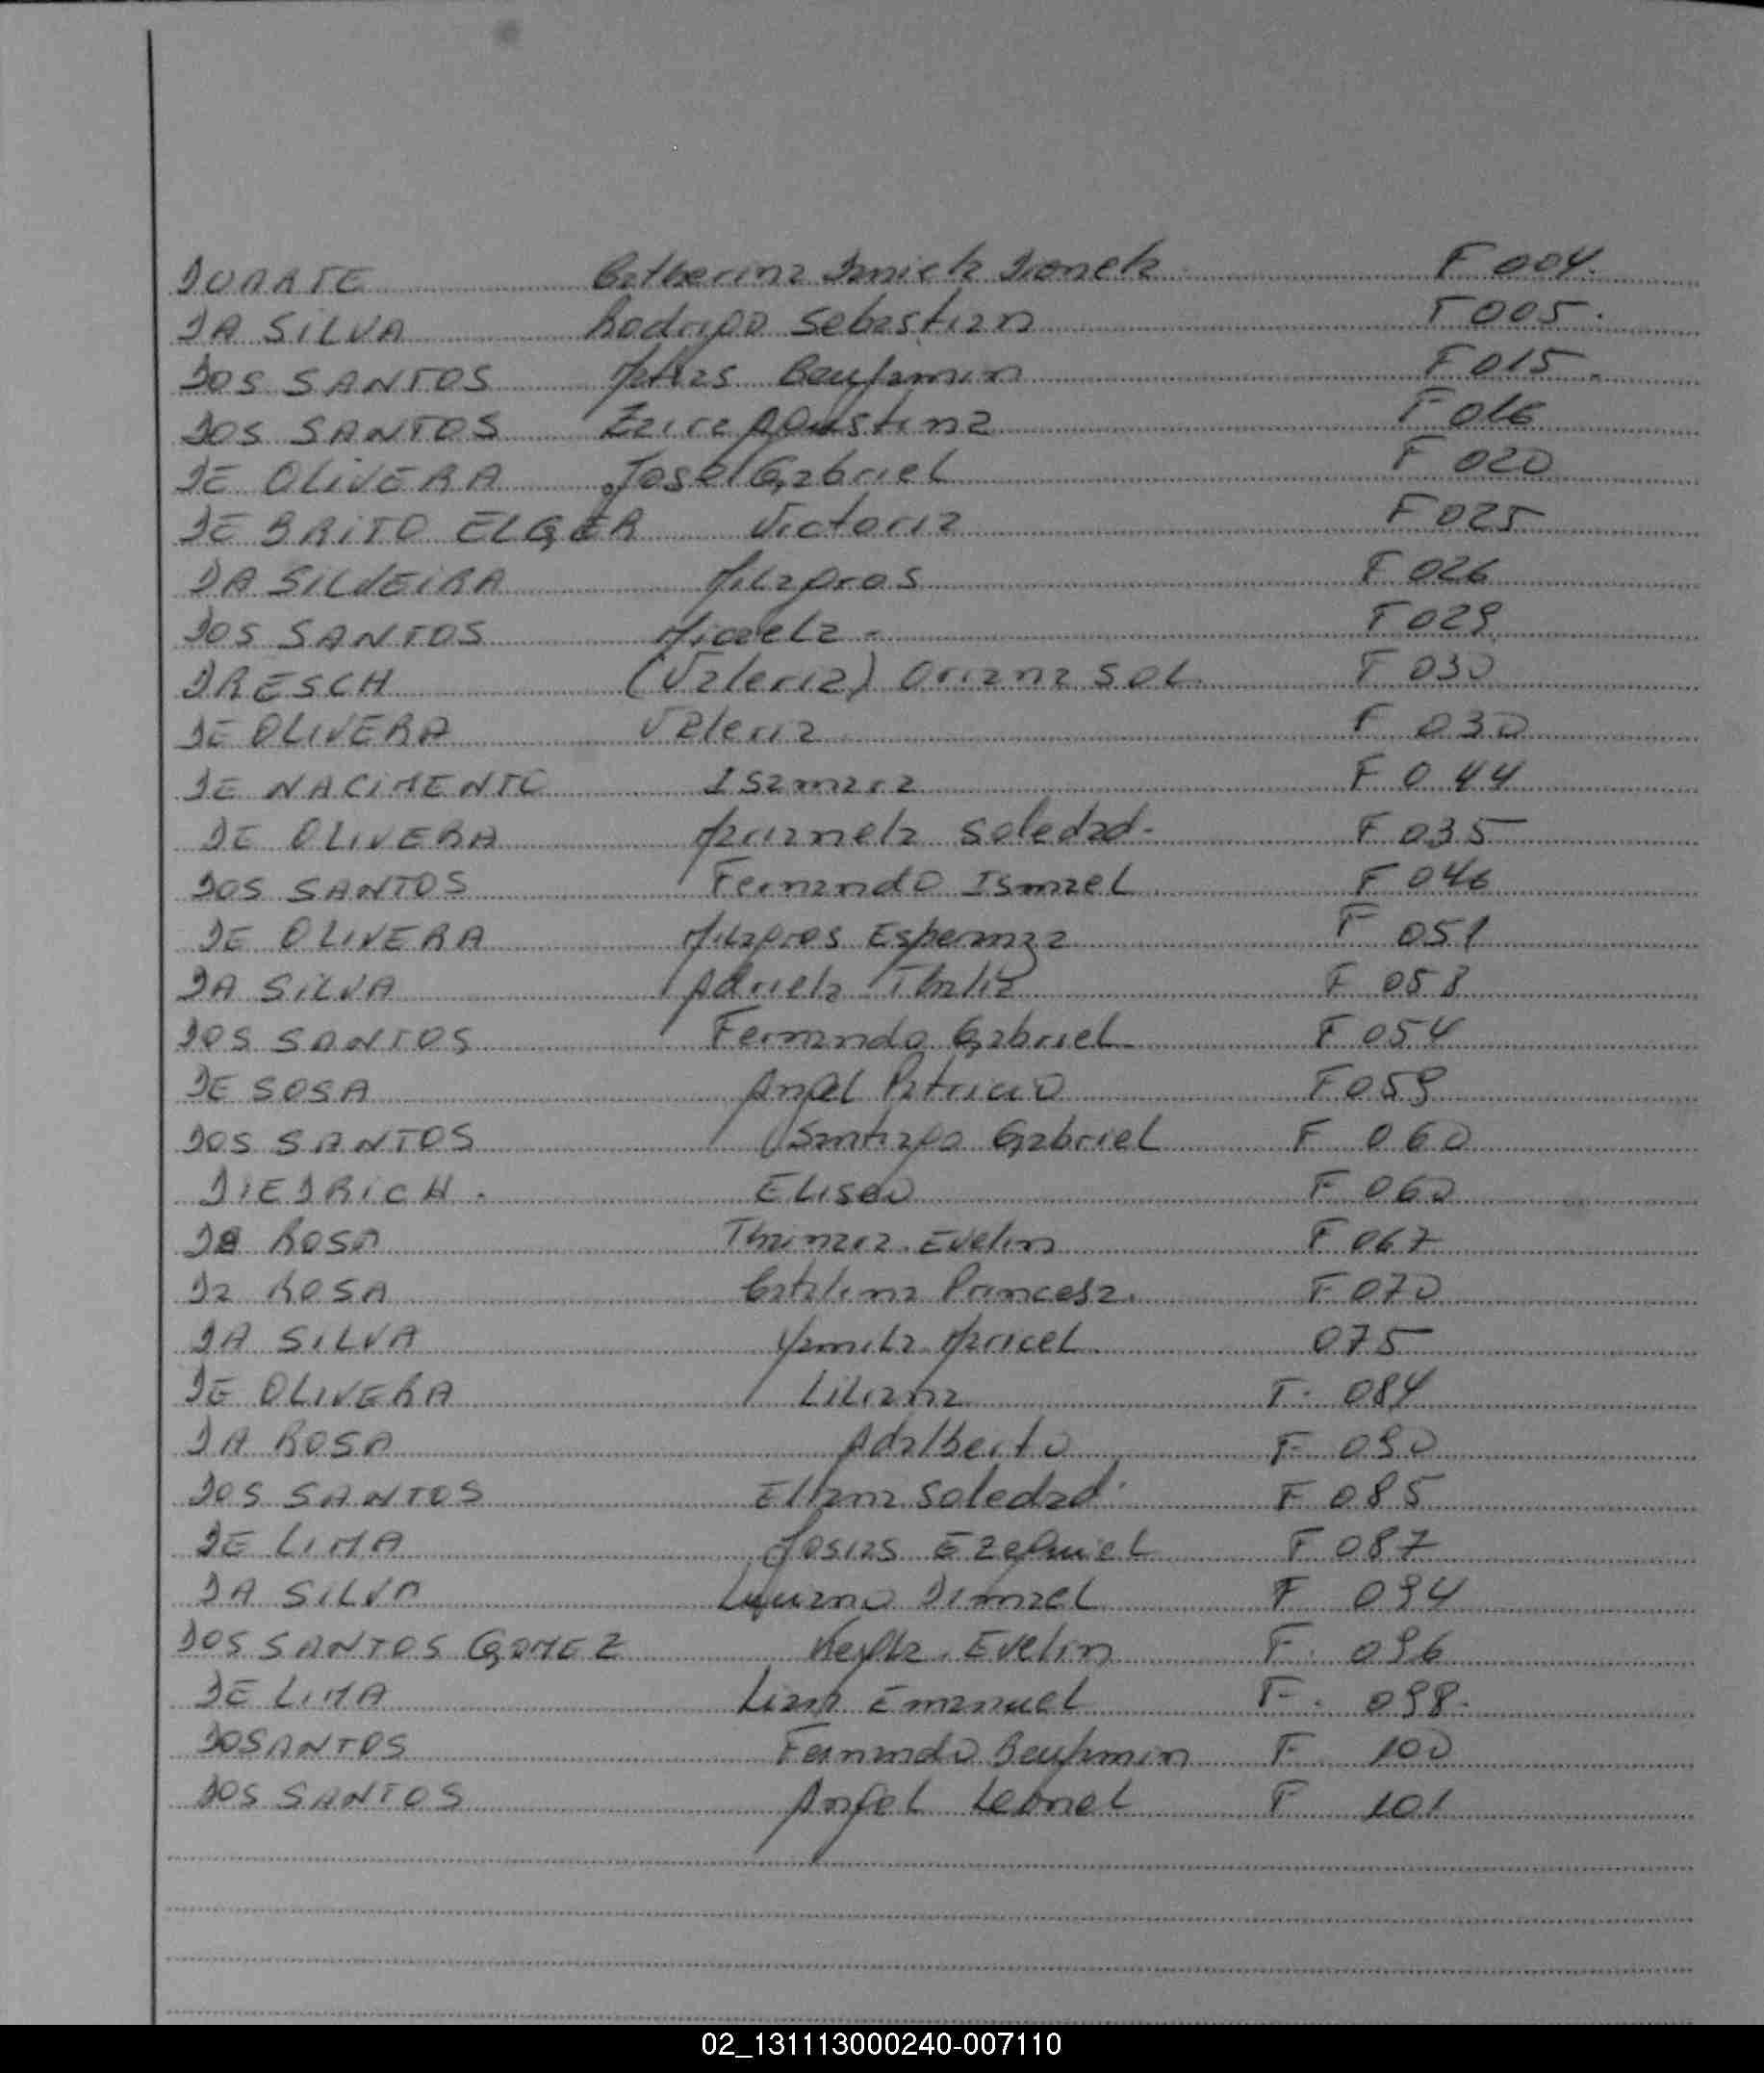 DUARTE Catherina Daniela Dionela F 004.
DA SILVA Rodrigo Sebastian F 005.
DOS SANTOS Matias Benjamin F 015.
DOS SANTOS Zaira Agustina F 016
DE OLIVERA José Gabriel F 020
DE BRITO ELGER Victoria F 025
DA SILVEIRA Milagros F 026
DOS SANTOS Micaela F 029
DRESCH (Valeria) Oriana SOL F 030
DE OLIVERA Valeria F 030
DE NACIMENTO Isamara F 044
DE OLIVERA Marianela Soledad F 035
DOS SANTOS Fernando Ismael F 046
DE OLIVERA Milagros Esperanza F 051
DA SILVA Adriela Thalia F 058
DOS SANTOS Fernando Gabriel F 054
DE SOSA Angel Patricio F 059
DOS SANTOS Santiago Gabriel F 060
DIEDRICH. Eliseo F 060
DA ROSA Thainara Evelin F 067
Da ROSA Catalina Princesa. F 070
DA SILVA Yamila Maricel 075
DE OLIVERA Liliana F. 084
DA ROSA Adalberto F 090
DOS SANTOS Eliana Soledad F 085
DE LIMA Josias Ezequiel F 087
DA SILVA Luciano Dimael F 094
DOS SANTOS GOMEZ Keyla Evelin F. 096
DE LIMA Liam Emanuel F. 098.
DOSANTOS Fernando Benjamin F 100
DOS SANTOS Angel Leonel F 101
02_131113000240-007110